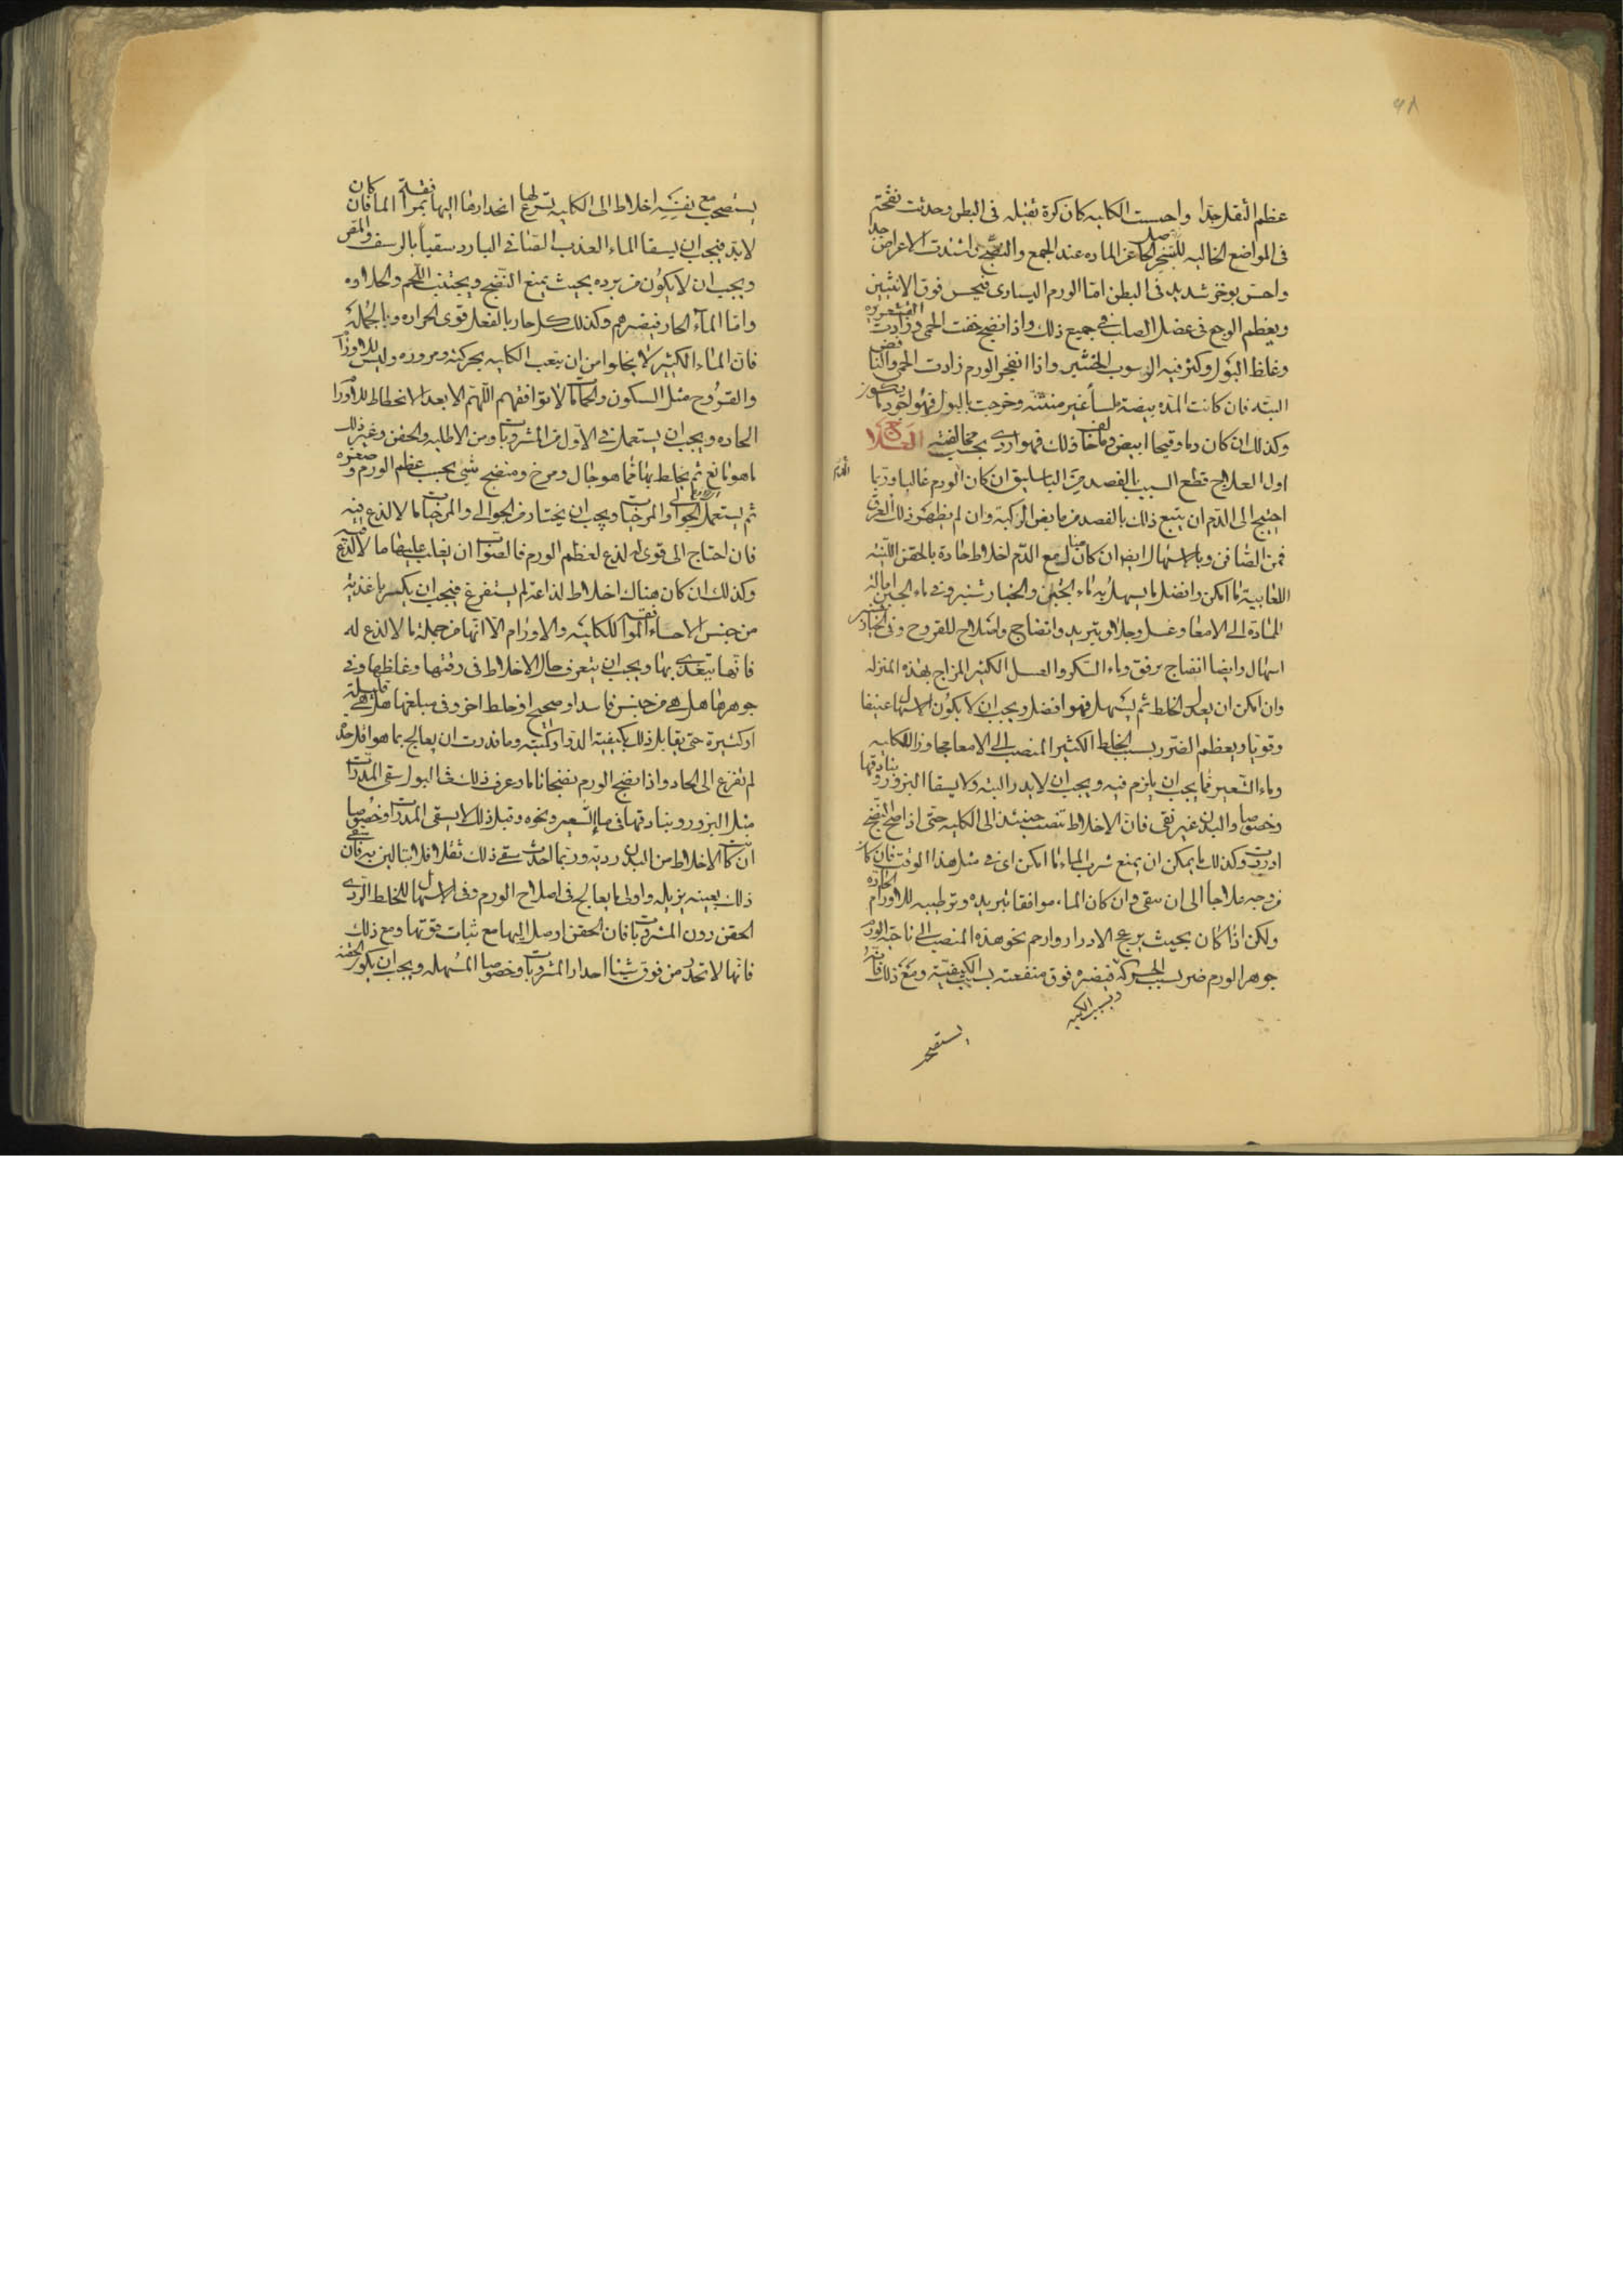 عظم الثقل جدا واحست الكليه كان كرة ثقيله فى البطن وحدثت نفخة
فى المواضع الخاليه للتبخر الحاصل عن الماده عند الجمع والنضج اشتدت الاعراض جدا
واحس بوخز شديد فى البطن اما الورم اليسارى فيحس فوق الانثيين
ويعظم الوجع فى عضل الصلب فى جميع ذلك واذا نضج خفت الحمى وزادت القشعريره
وغلظ البول وكثر فيه الرسوب واذا انفجر الورم زادت الحمى والنافض
البته فان كانت المدة بيضة ملسا غير منتنه وخرجت بالبول فهو اجود ما يكون
وكذلك ان كان دما وقيحا ابيض وما خالف ذلك فهو اردى بحسب مخالفته العلاج
اول العلاج قطع السبب بالفصد من الباسليق ان كان الورم غالبا وربما
احتيج الى الدم ان يتبع ذلك بالفصد من مابض الركبة وان لم يظهر ذلك العرق
فمن الصافن وبالاسهال ايضا ان كان هناك مع الدم اخلاط حادة بالحقن اللينه
اللعابية ما امكن وافضل ما يسهل به ماء الجبن والخيار شنبر وفى ماء الجبن امالة
المادة الى الامعا وغسل وجلاء وتبريد وانضاج واصلاح للقروح وفى الخيار شنبر
اسهال وايضا انضاج برفق وماء السكر والعسل الكثير المزاج بهذه المنزله
وان امكن ان يعدل الخلط ثم يسهل فهو افضل ويجب ان لا يكون الاسهال عنيفا
وقويا ويعظم الضرر بسبب الخلط الكثير المنصب الى الامعا مجاوزا للكليه
وماء الشعير مما يجب ان يلزم فيه ويجب ان لا يدر البته ولا يسقا البزور وبنادقها
وخصوصا والبدن غير نقى فان الاخلاط تنصب حينئذ الى الكليه حتى اذا صح النضج
ادررت وكذلك ما يمكن ان يمنع شرب الماء ما امكن اى فى مثل هذا الوقت فان كان
من وجه علاجا الى ان يبقى وان كان الماء موافقا بتبريده وترطيبه للاورام الحاده
ولكن اذا كان بحيث يرجع الادرار وازحم نحو هذه المنصب الى ناحية الورم
جوهر الورم ضر بسبب الحركه فيضره فوق منفعته بسبب الكيفية ومع ذلك فانه
وبسبب الكميه
يستصحب
يستصحب مع نفسه اخلاط الى الكليه يسرع لها انحدارها اليها بمرافقة الما فان كان
لابد فيجب ان يسقا الماء العذب الصافى البارد سقيا بالرشف والمص
ويجب ان لا يكون من برده بحيث يمنع النضج ويجتنب اللحم والحلاوه
واما الماء الحار فيضرهم وكذلك كل حار بالفعل قوى الحراره وبالجملة
فان الماء الكثير لا يخلوا من ان يتعب الكليه بحركته ومروره وليس للاورام
والقروح مثل السكون والحمامات لا توافقهم اللهم الا بعد الانحطاط للاورام
الحاده ويجب ان يستعمل فى الاول من المشروبات ومن الاطليه والحقن وغير ذلك
ما هو مانع ثم يخلط بها مما هو جال ومرخ ومنضج شى بحسب عظم الورم وصغره
ثم يستعمل الجوالى والمرخيات ويجب ان يختار من الجوالى والمرخيات ما لا لذع فيه
فان احتاج الى قوى له لذع لعظم الورم فالصواب ان يغلب عليها ما لا لذع فيه
وكذلك ان كان هناك اخلاط لذاعه لم يستفرغ فيجب ان يكسر باغذيه
من جنس الاحساء الموافقه للكلية والاورام الا انها من جملة ما لا لذع له
فانها يتغذى بها ويجب ان يتعرف حال الاخلاط فى رقتها وغلظها وفى
جوهرها هل هى من جنس فاسد او صحيح او خلط اخر وفى مبلغها هل هى قليلة
او كثيرة حتى يقابل ذلك بكيفية الدوا وكميته وما قدرت ان يعالج بما هو اقل حدة
لم تفزع الى الحاد واذا نضج الورم نضجا تاما وعرف ذلك فى البول سقى المدرات
مثل البزور وبنادقها فى ماء الشعير ونحوه وقبل ذلك لا يسقى المدرات وخصوصا
ان كانت الاخلاط من البدن رديه وربما احدث سقى ذلك ثقلا فلا تبالين به فان
ذلك بعينه يزيله واولى ما يعالج فى اصلاح الورم وفى الاسهال للخلط الردى
الحقن دون المشروبات فان الحقن اوصل اليها مع ثبات قوتها ومع ذلك
فانها لا تحدر من فوق شيئا احدار المشروبات وخصوصا المسهله ويجب ان يكون الحقنة